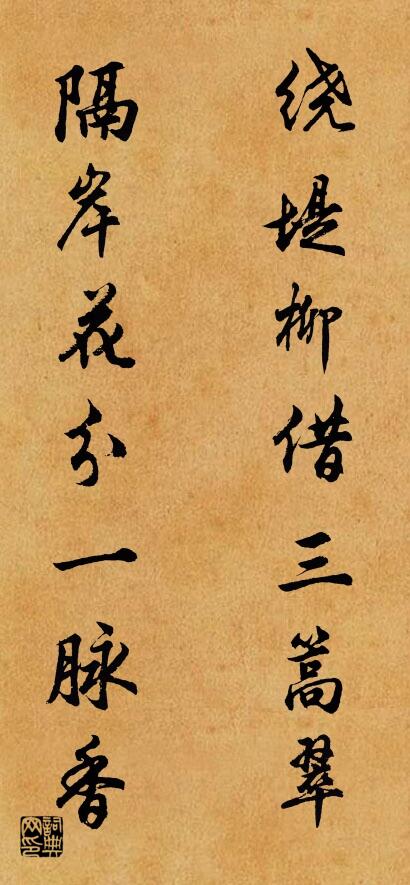 绕堤柳借三篙翠
隔岸花分一脉香
词典网印